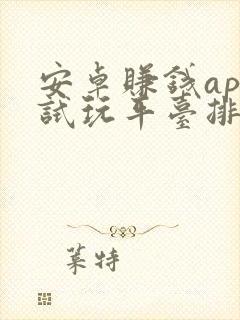 安卓賺錢ap
試玩平臺排
葉特